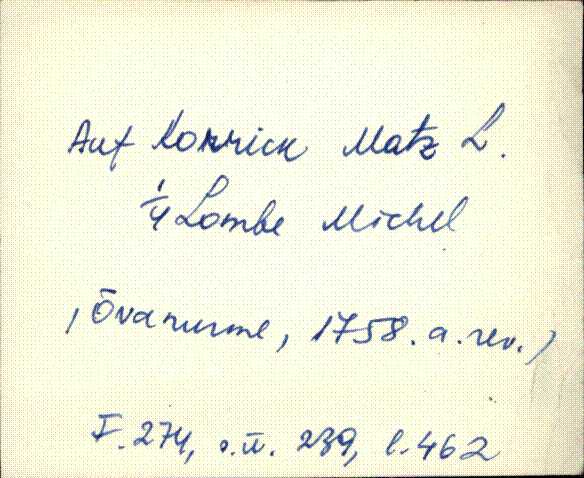 Auf Korrick Matz L.
1/4 Lombe Michel
(Õvanurme, 1758. a. rev.)
F. 274, s.ü. 239, l. 462